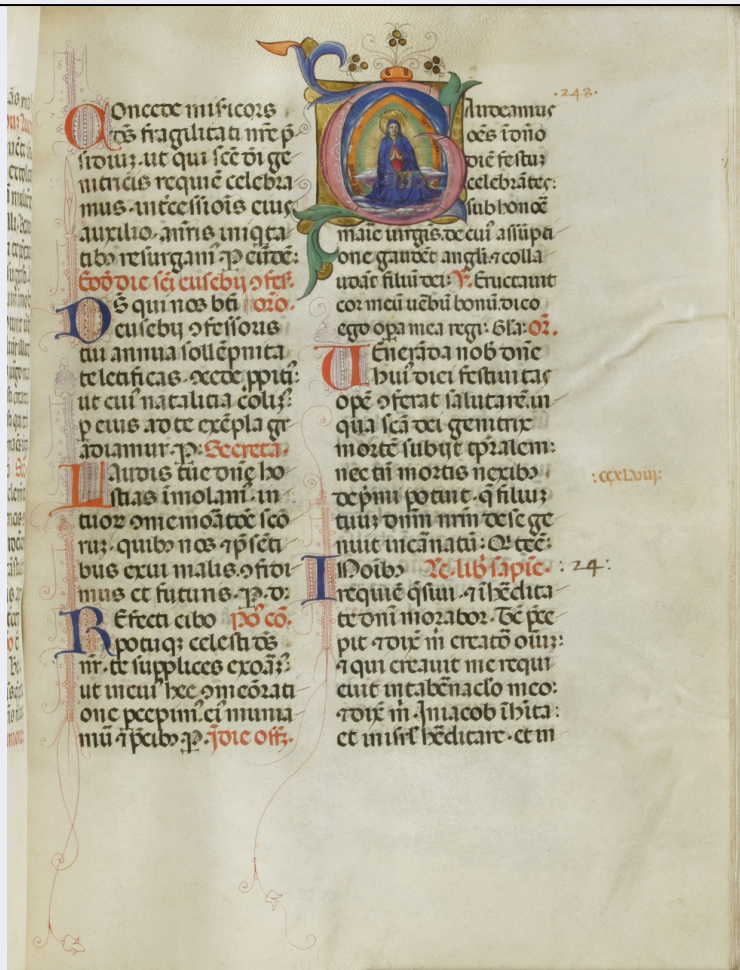 Oncede misericors
ds̄ fragilitati nr̄e p̄
sidiuʒ. ut qui scē di ge
nitricis requiē celebra
mus. intcessiōis eius
auxilio. anr̄is iniqta
tibꝫ resurgam᷒. P eūdē:
Eod̄ die sc̄i eusebij ꝯfes.
DS̄ qui nos bt̄i orō.
eusebij ꝯfessoris
tui annua sollēpnita
te letificas. ꝯcede ppiti᷒:
ut cui᷒ natalitia colim᷒:
p eius ad te exēpla gr
adiamur. P: Secreta.
LAudis tue dn̄e ho
stias īmolam᷒. in
tuoꝝ ꝯmemoātōē scō
ruʒ. quibꝫ nos ⁊ p̄sēti
bus exui malis. ꝯfidi
mus et futuris. P. d:
REfecti cibo Po' cō.
potuqʒ celesti ds̄
nr̄. te supplices exoram᷒:
ut in cui᷒ hec ꝯmeōrati
one pcepim᷒. ei᷒ munia
mur ⁊ p̄cibꝫ. P. I die off̄.
.248.
GAudeamus
oēs ī dn̄o
diē festuʒ
celebrātes:
sub honoē
marie uirgis. de cui᷒ assūpti
one gaudēt angli. ⁊ colla
udāt filiuʒ dei: V. Eructauit
cor meū uēbū bonū. dico
ego oꝑa mea regi: Gla: Or̄.
UEnerāda nob̄ dn̄e
hui᷒ diei festiuitas
opē ꝯferat salutarē. in
qua scā dei genitrix
mortē subijt tp̄ralem:
nec tn̄ mortis nexibꝫ
dep̄mi potuit. q̄ filiuʒ
tuuʒ dn̄m nr̄m de se ge
nuit incarnatū: Q tec̄:
:ccxlviij:
INoībꝫ Lc. lib̄ sapīe. : 24 .
requiē q̄siui. ⁊ ī hēdita
te dn̄i morabor. Tc̄ p̄ce
pit ⁊ dix̄ m̄ creatō oīuʒ:
⁊ qui creauit me requi
euit in tabēnaclo meo:
⁊ dix̄ m̄. In iacob īhīta:
et in isrl̄ hēditare. et in